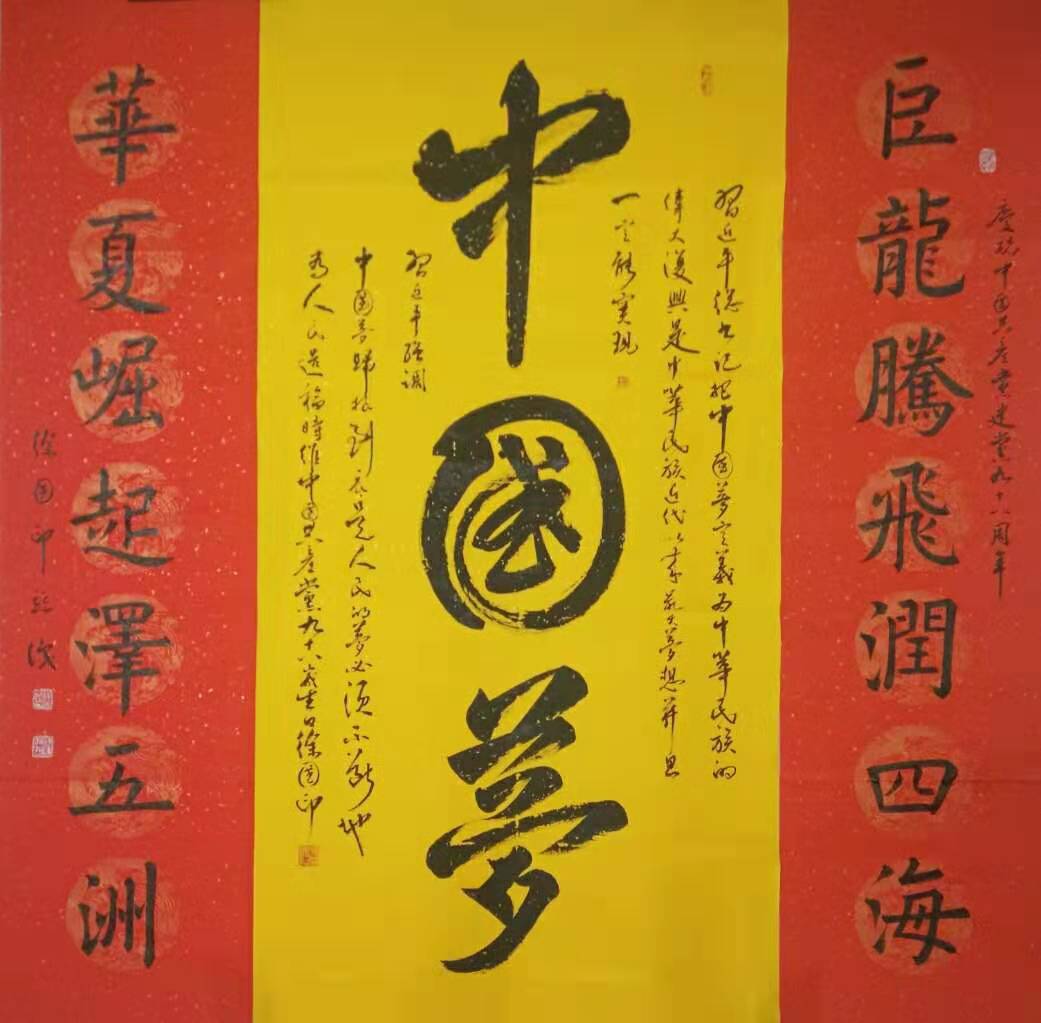 慶祝中國共產黨建黨九十八周年
巨龍騰飛潤四海
中國夢
習近平總書記把中國夢定義為中華民族的
偉大復興是中華民族近代以來最大夢想并且
一定能實現
習近平強調
中國夢歸根到底是人民的夢必須不斷地
為人民造福時維中國共產黨九十八歲生日徐國印
華夏崛起澤五洲
徐國印